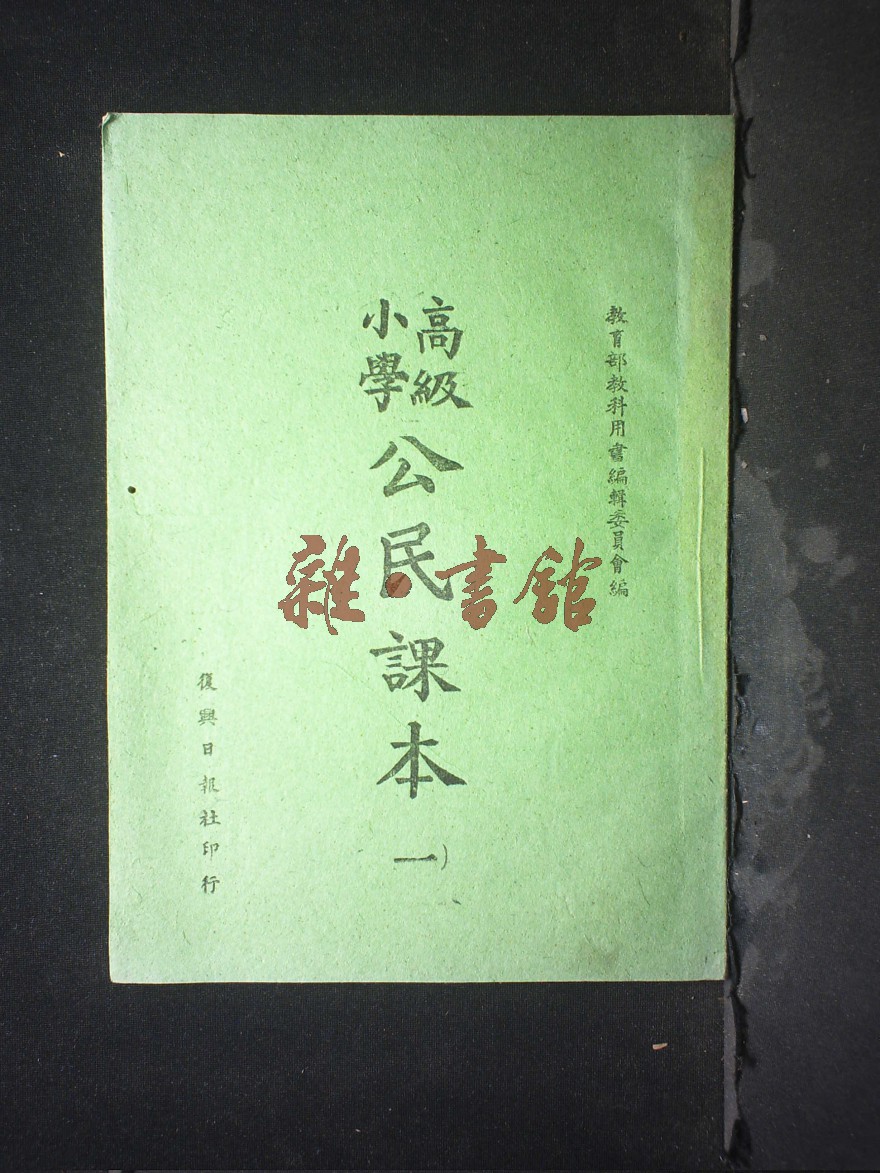 教育部教科用書編輯委員會編
高級
小學
公民課本
一)
復興日報社印行
雜·書館